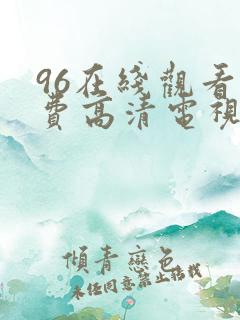 96在綫觀看
費高清電視
傾青戀色
未任同意禁止詻栈